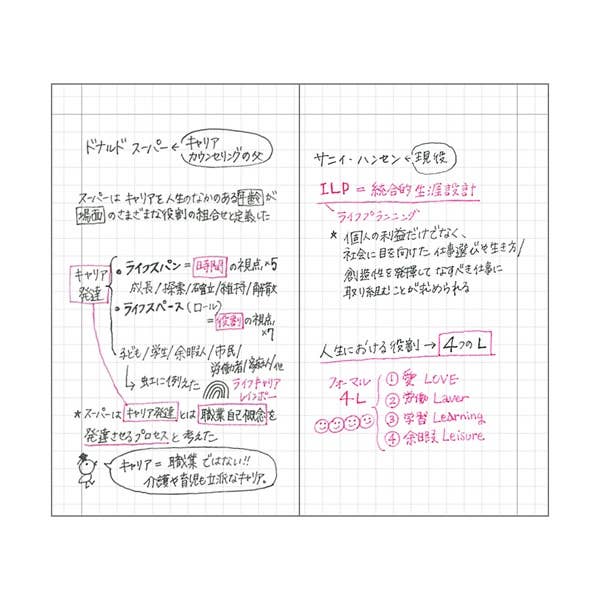 ドナルド スーパー ← キャリア
カウンセリングの父
スーパーは キャリアを人生のなかのある年齢が
場面のさまざまな役割の組合せと定義した
キャリア
発達
● ライフスパン = 時間の視点×5
成長/探索/確立/維持/解放
● ライフスペース (ロール)
= 役割の視点×7
子ども/学生/余暇人/市民/
労働者/家庭人/他
→ 虹に例えた
ライフキャリア
レインボー
* スーパーは キャリア発達 とは 職業自己概念を
発達させるプロセスと考えた
キャリア = 職業 ではない!!
介護や育児も立派なキャリア。
サニィ・ハンセン ← 現役
ILP = 統合的生涯設計
ライフプランニング
* 個人の利益だけでなく、
社会に目を向けた 仕事選びや生き方/
創造性を発揮して なすべき仕事に
取り組むことが求められる
人生における役割 → 4つのL
フォーマル
4-L
① 愛 LOVE
② 労働 Laver
③ 学習 Learning
④ 余暇 Leisure